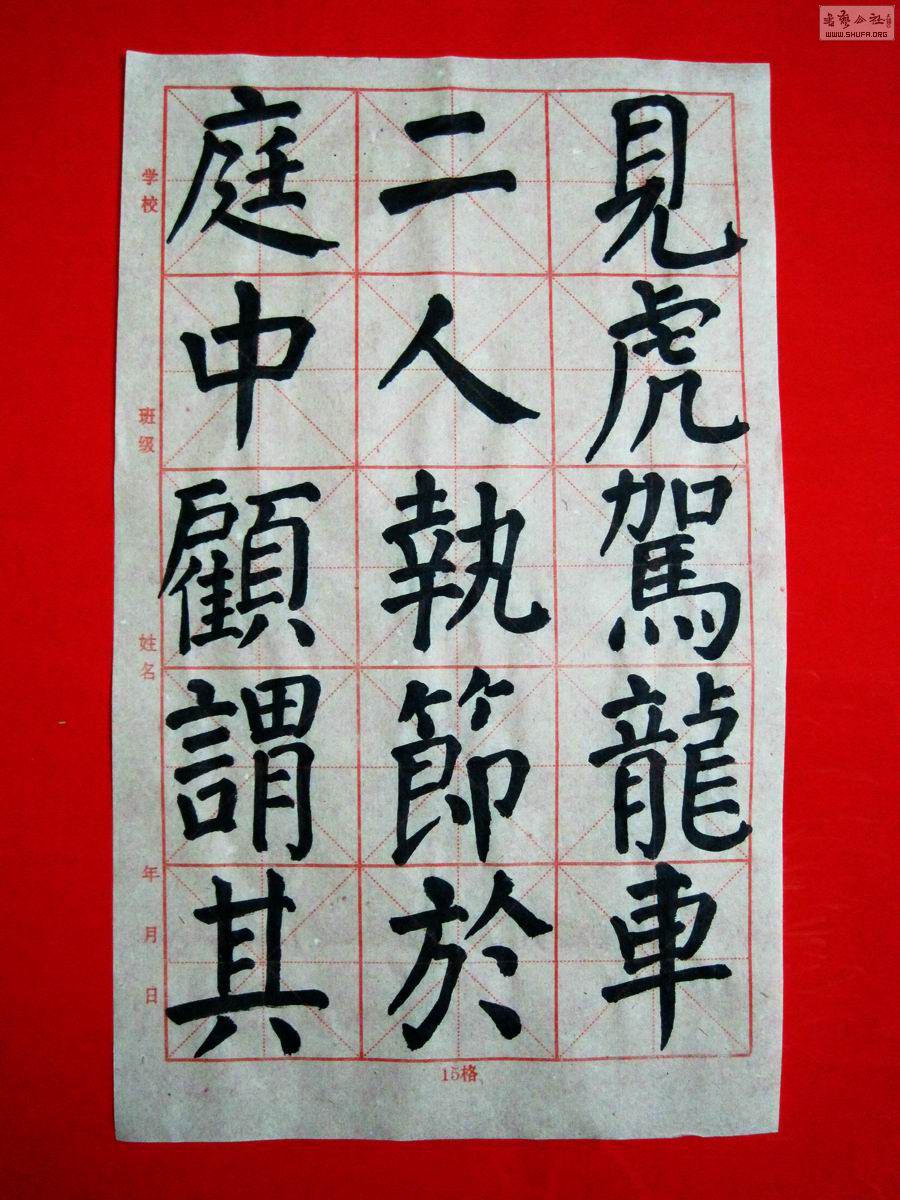 見虎駕龍車
二人執節於
庭中顧謂其
学校
班级
姓名
年月日
15格
書藝公社
WWW.SHUFA.ORG